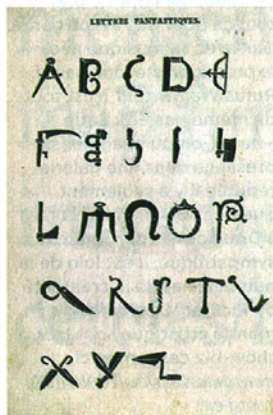 LETTRES FANTASTIQUES.
A B C D E
F G H I K
L M N O P
Q R S T V
X Y Z